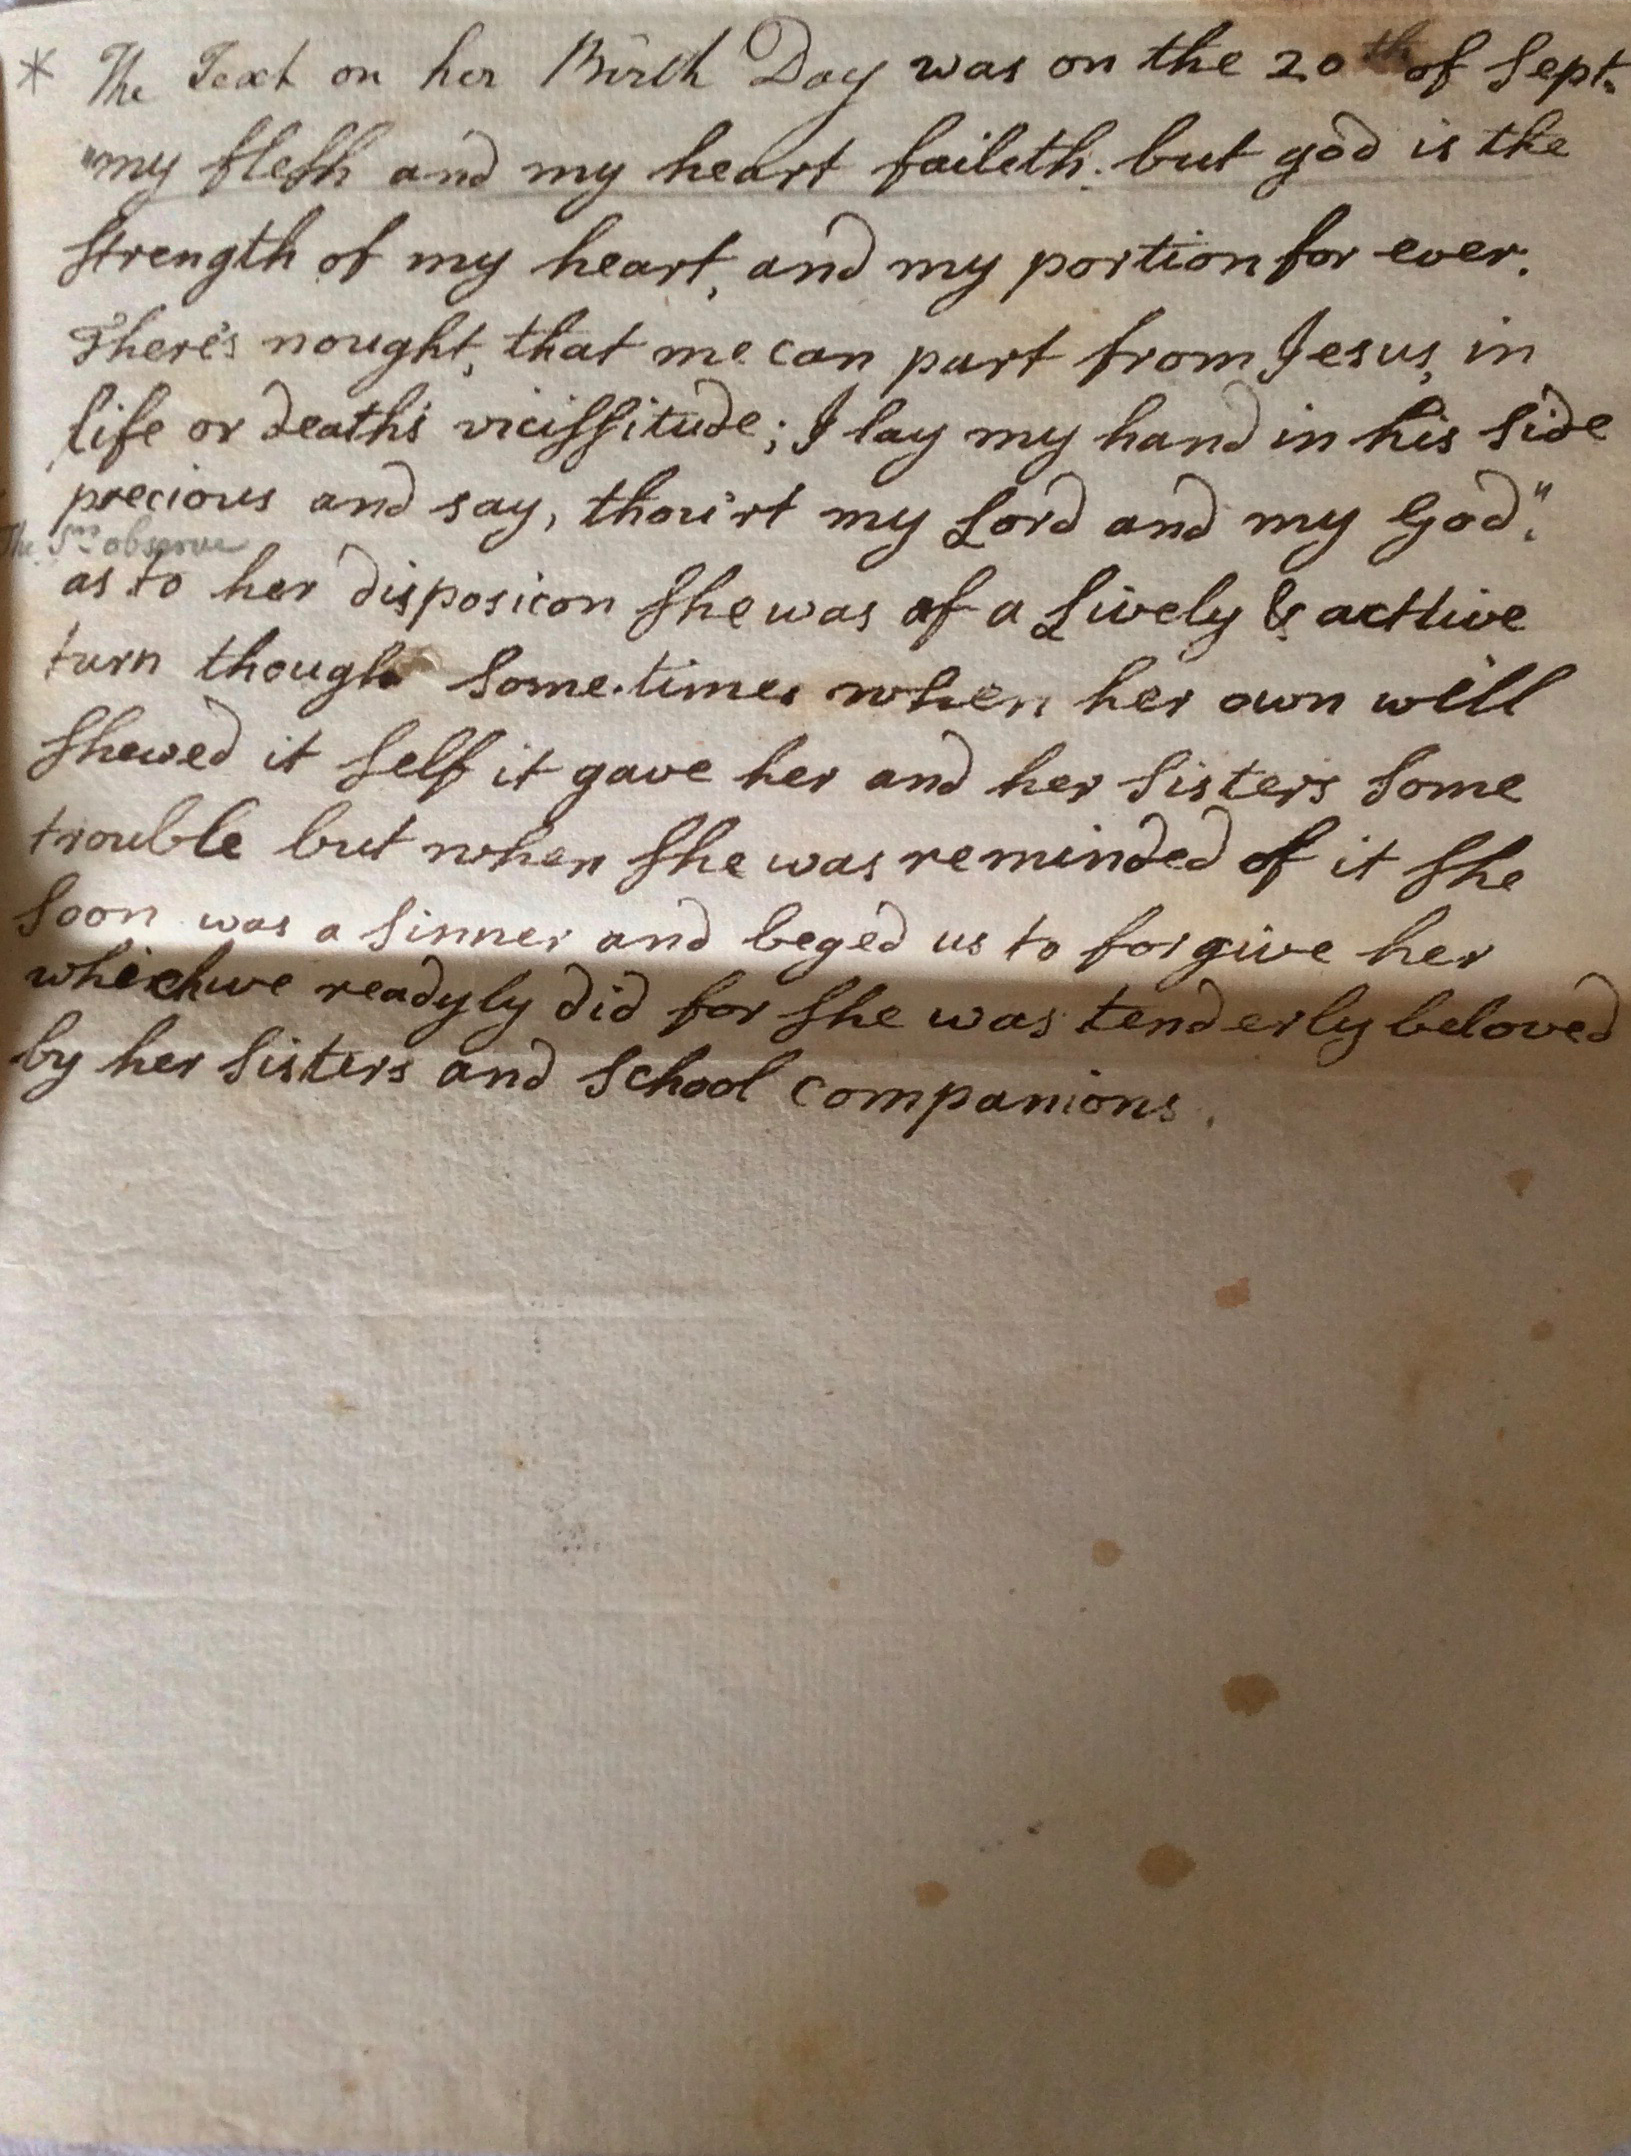 * The Text on her Birth Day was on the 20th of Sept.
"my flesh and my heart faileth: but god is the
strength of my heart, and my portion for ever.
There's nought, that me can part from Jesus, in
life or death's vicissitude; I lay my hand in his side
precious and say, thou'rt my Lord and my God."
The Srs observe
as to her disposicon she was of a Lively & acttive
turn though some times when her own will
shewed it self it gave her and her sisters some
trouble but when she was reminded of it she
soon was a sinner and beged us to forgive her
which we readyly did for she was tenderly beloved
by her sisters and school companions.